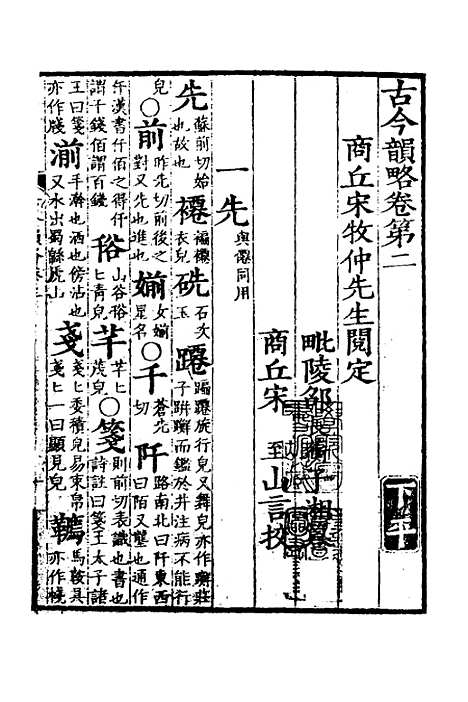 古今韻略卷第二
商丘宋牧仲先生閱定
毗陵邵 子湘
商丘宋 至山言挍
一先與僊同用
先蘇前切始也故也䙴褊䙴衣皃硟石次玉蹮蹁蹮旅行皃又舞皃亦作躚莊子跰𨇤而鑑於井注病不能行
皃〇前昨先切前後之對又先也進也媊女媊星名〇千蒼先切阡路南北曰阡東西曰陌又壟也通作
仟漢書仟佰之得仟謂千錢佰謂百錢谸山谷谸匕青皃芊芊匕茂皃〇箋則前切表識也書也詩註曰箋王太子諸
王曰箋亦作牋湔手澣也洒也傍沾也又水出蜀緜虒山戔戔匕委積皃易束帛戔匕一曰顯見皃韉馬鞁具亦作㡇